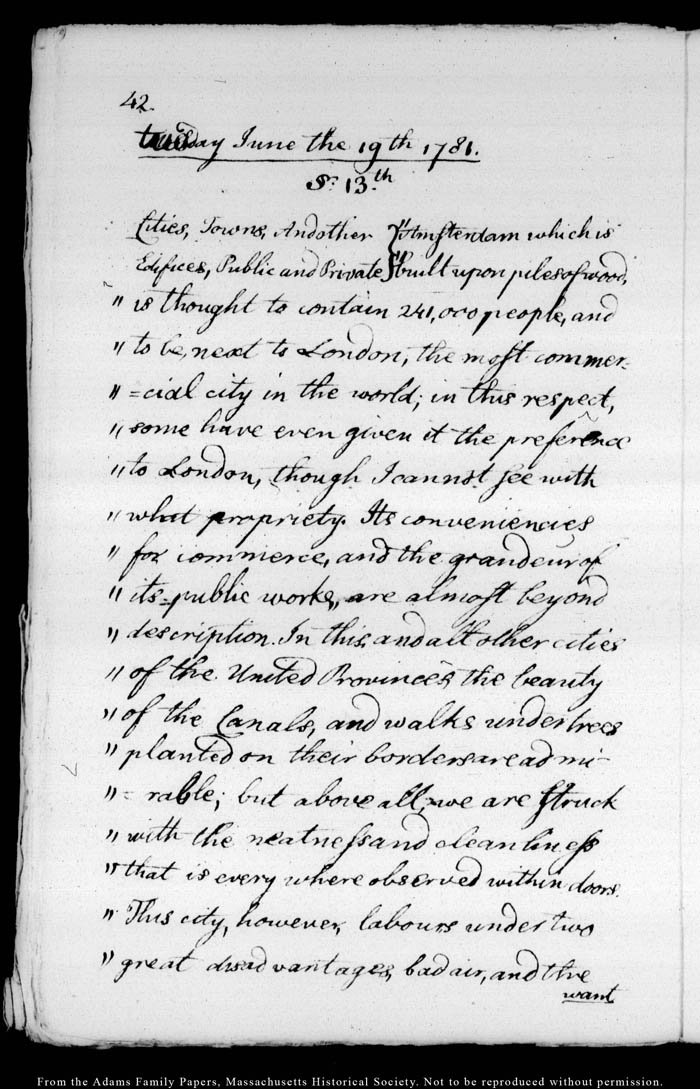 42.
tuesday June the 19th 1781.
S: 13.th
Cities, Towns, And other } "Amsterdam which is
Edifices, Public and Private } "built upon piles of wood,
" is thought to contain 241,000 people, and
" to be, next to London, the most commer=
" =cial city in the world; in this respect,
" some have even given it the preference
" to London, though I cannot see with
" what propriety. Its conveniencies
" for commerce, and the grandeur of
" its=public works, are almost beyond
" description. In this, and all other cities
" of the United Provinces, the beauty
" of the Canals, and walks under trees
" planted on their borders are admi-
" = rable; but above all, we are struck
" with the neatness and cleanliness
" that is every where observed within doors.
" This city, however, labours under two
" great disadvantages, bad air, and the
want
From the Adams Family Papers, Massachusetts Historical Society. Not to be reproduced without permission.